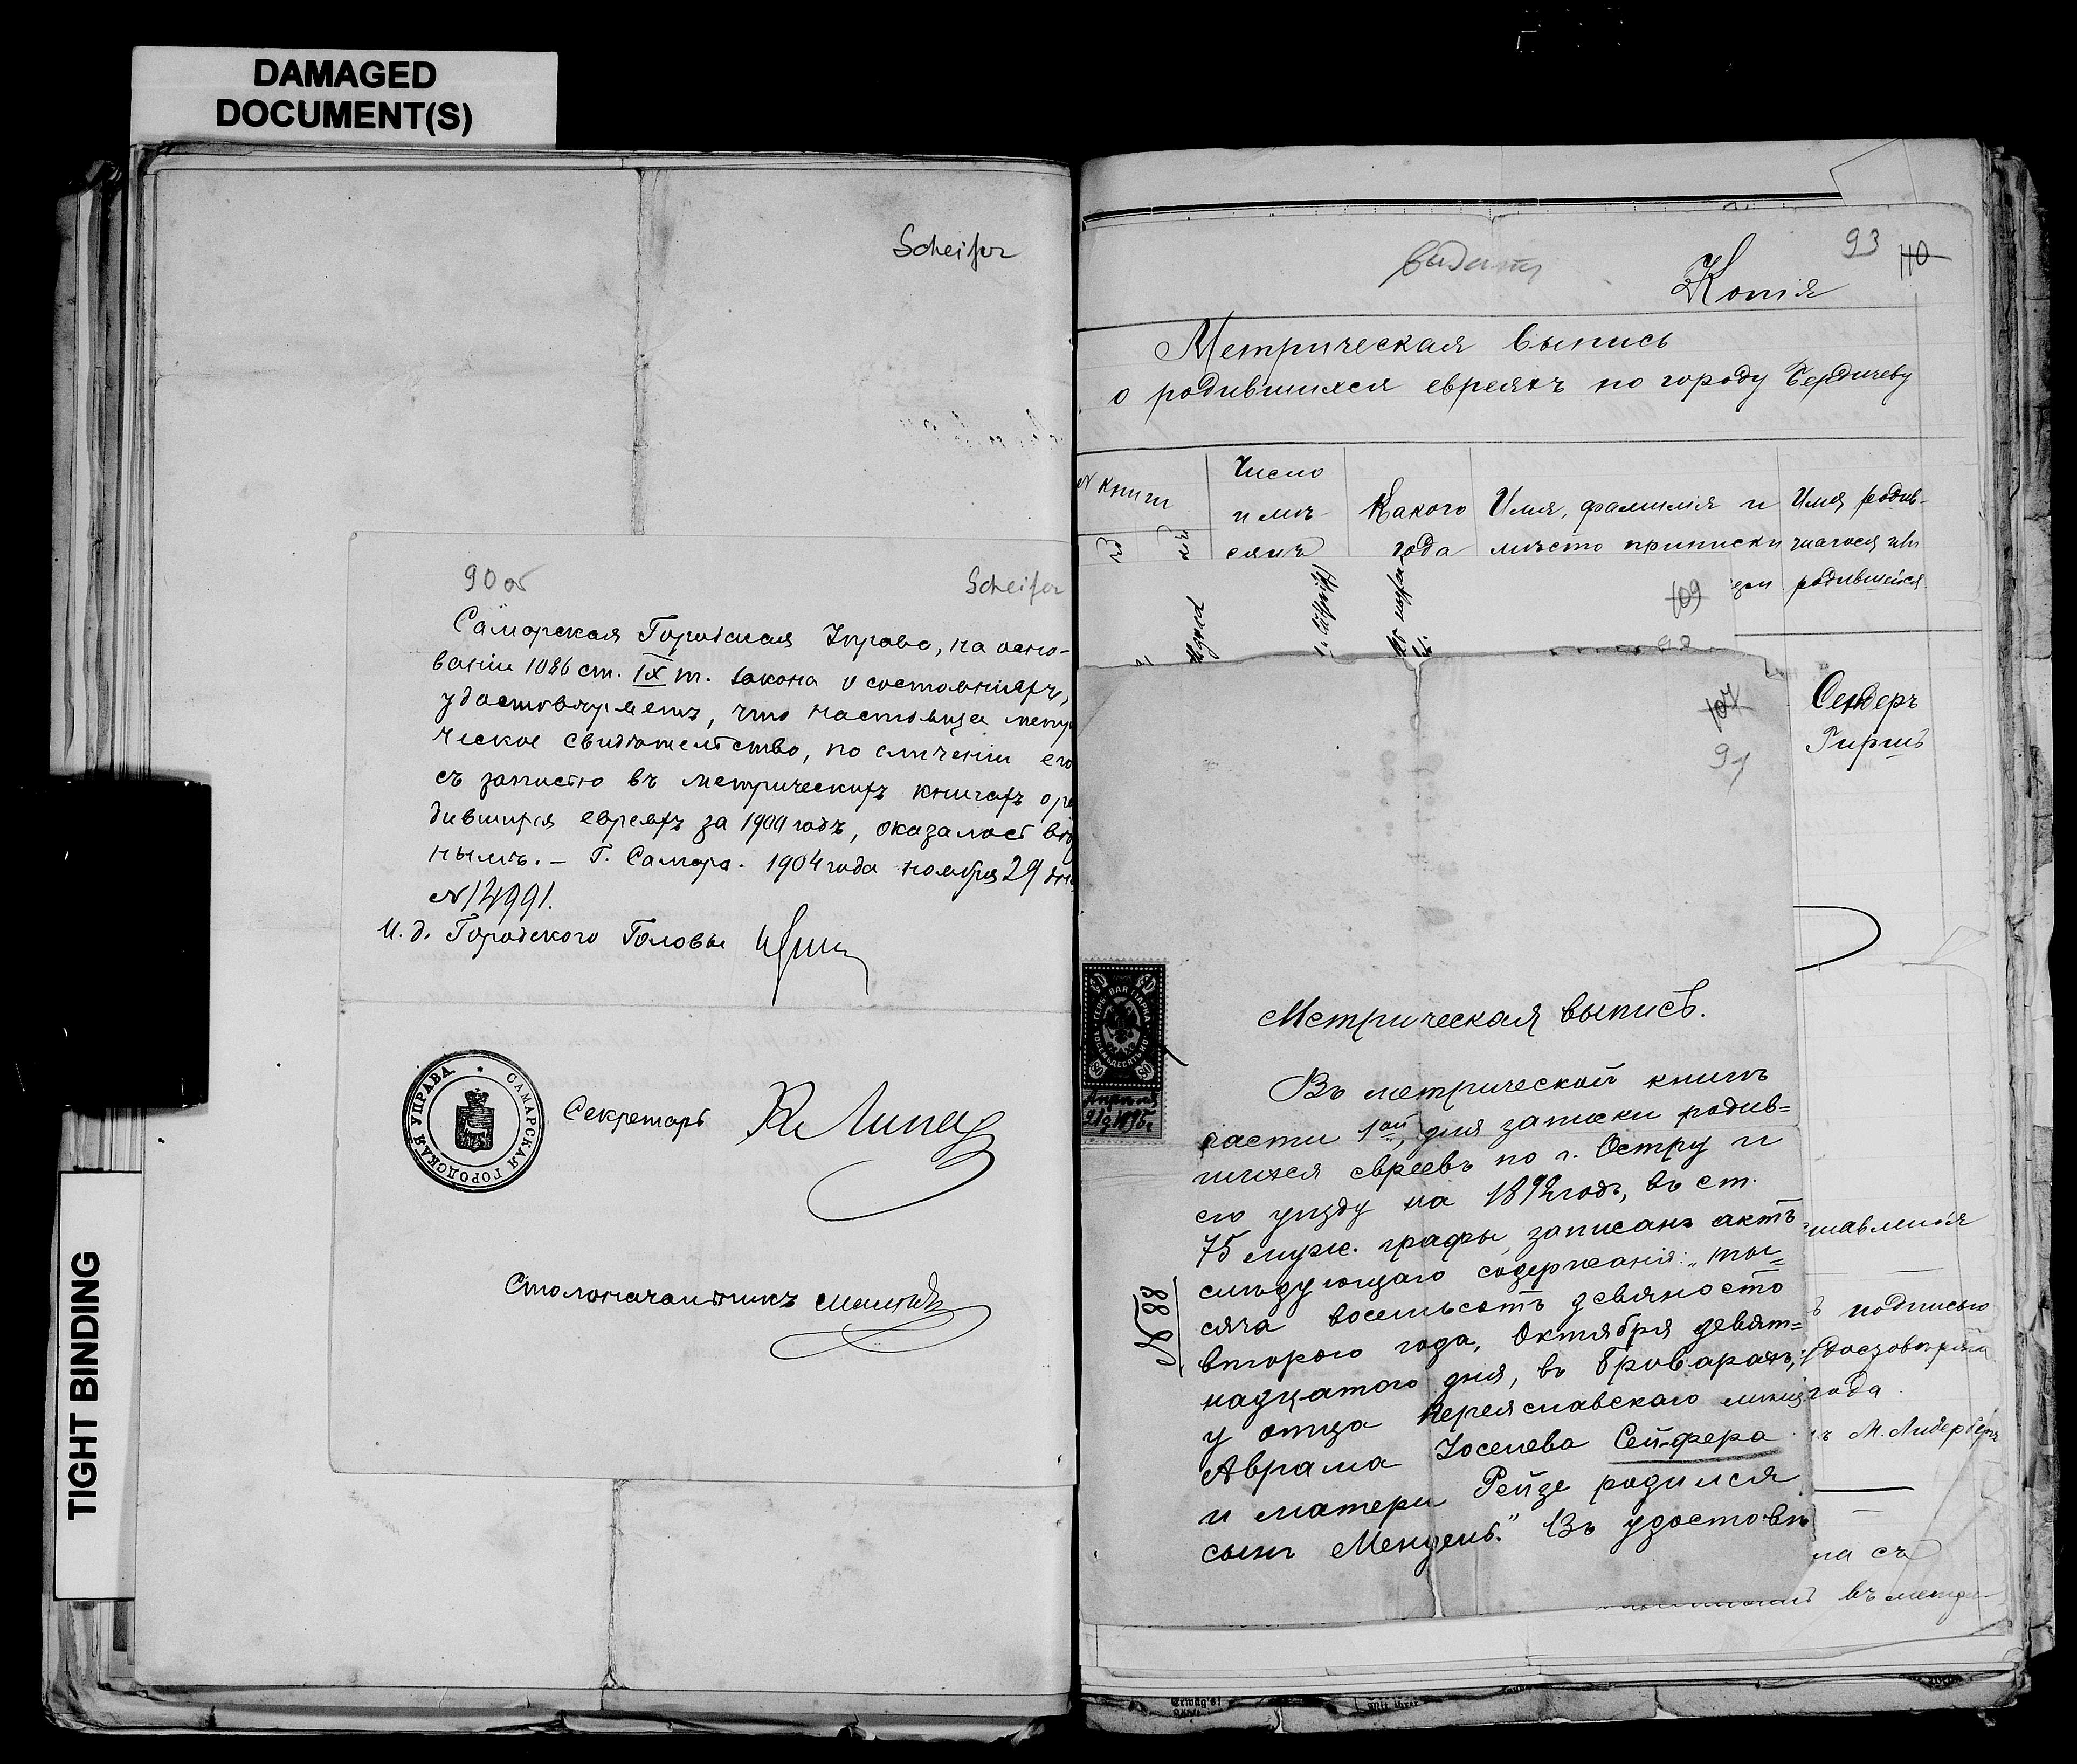 DAMAGED
DOCUMENT(S)
TIGHT BINDING
Scheifer
90 об
Scheifer
Самарская Городская Управа, на осно-
ваніи 1086 ст. IX т. закона о состояніяхъ,
удостовѣряетъ, что настоящее метри
ческое свидѣтельство, по сличеніи его
съ записью въ метрическихъ книгахъ о ро
дившихся евреяхъ за 1900 годъ, оказалось вѣр
нымъ. – Г. Самара. 1904 года ноября 29 дня
№ 14991.
И. д. Городского Головы
САМАРСКАЯ ГОРОДСКАЯ УПРАВА
Секретарь
Столоначальникъ
93 110
Копія
Метрическая выпись
о родившихся евреяхъ по городу Бердичеву
№ книги
Число
и мѣ-
сяцъ
Какого
года
Имя, фамилія и
мѣсто приписки
Имя родив-
шагося или
родившейся
109
Сендеръ
Гиршъ
107
91
ГЕРБОВАЯ МАРКА
ВОСЕМЬДЕСЯТЪ КО
80 80
Метрическая выпись.
Въ метрической книгѣ
части 1ой, для записки родив=
шихся евреевъ по г. Остру и
его уѣзду на 1892 годъ, въ ст.
75 муж. графы, записанъ актъ
слѣдующаго содержанія: „ты=
сяча восемьсотъ девяносто
второго года, Октября девят=
надцатого дня, въ Броварахъ,
у отца Переяславскаго мѣщ.
Аврама Іоселева Сейфера
и матери Рейзе родился
сынъ Мендель." Въ удостовѣ
№ 88
тавленія
подписью
года
М. Лидерберъ
ла съ
въ метри